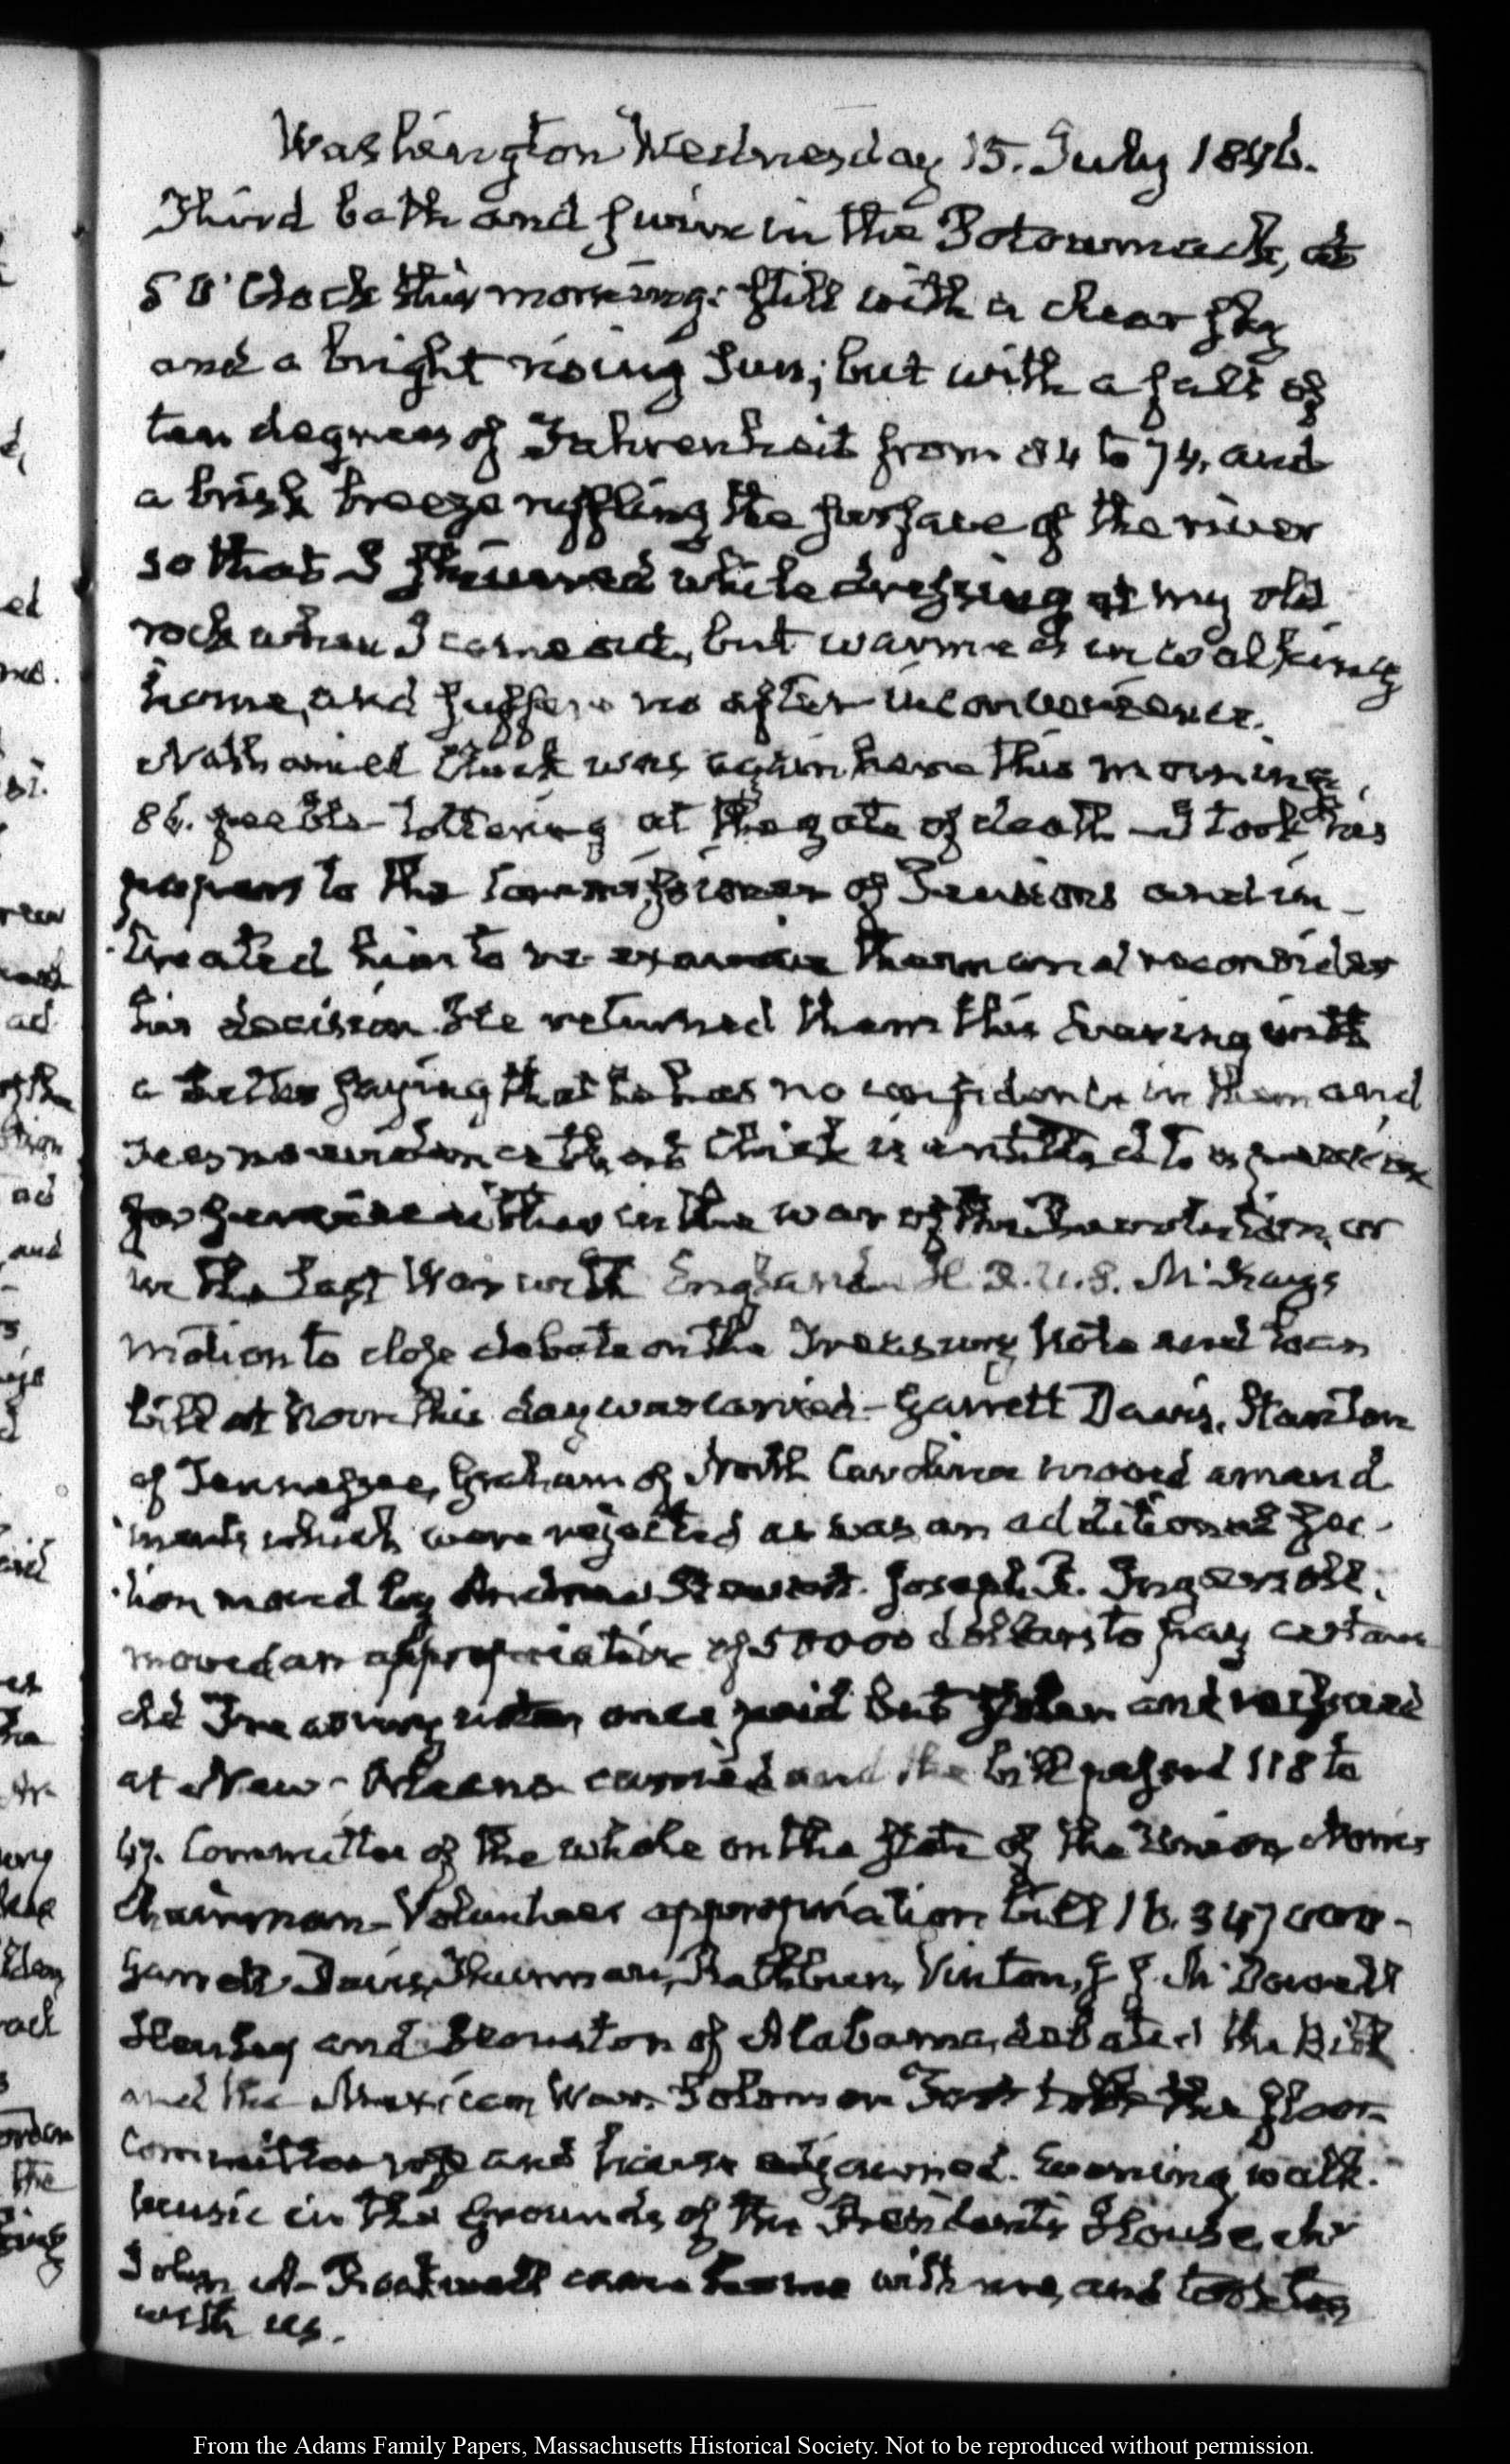 Washington Wednesday 15. July 1846.
Third bath and swim in the Potowmack, at
5 O'Clock this morning: still with a clear sky
and a bright rising Sun; but with a fall of
ten degrees of Fahrenheit from 84 to 74, and
a brisk breeze ruffling the surface of the river
so that I shivered while dressing at my old
rock when I came out, but warmed in walking
home, and suffer no after inconvenience.
Nathaniel was again here this morning,
86. feeble tottering at the gate of death — I took his
papers to the Commissioner of Pensions and in-
treated him to re-examine them and reconsider
his decision. He returned them this Evening with
a Letter saying that he has no confidence in them and
sees no evidence that is entitled to a pension
for service either in the war of the Revolution, or
in the last War with England. H.R.U.S. McKay's
motion to close debate on the Treasury Note and loan
bill at Noon this day was carried — Garrett Davis, Stanton
of Tennessee, Graham of North Carolina moved amend
ments which were rejected as was an additional sec-
tion moved by Andrew Stewart. Joseph R. Ingersoll
moved an appropriation of 50000 dollars to pay certain
old Treasury notes, once paid but stolen and reissued
at New-Orleans carried and the bill passed 118 to
47. Committee of the whole on the state of the Union, Norris
Chairman — Volunteer appropriation bill
Garrett Davis, Thurman, Rathbun, Vinton, J. J. McDowell
Henley and Houston of Alabama, debated the Bill
and the Mexican War. Solomon Foot took the floor.
Committee rose and house adjourned. Evening walk.
Music in the Grounds of the President's House, Mr
John A. Rockwell came home with me, and took tea
with us.
From the Adams Family Papers, Massachusetts Historical Society. Not to be reproduced without permission.